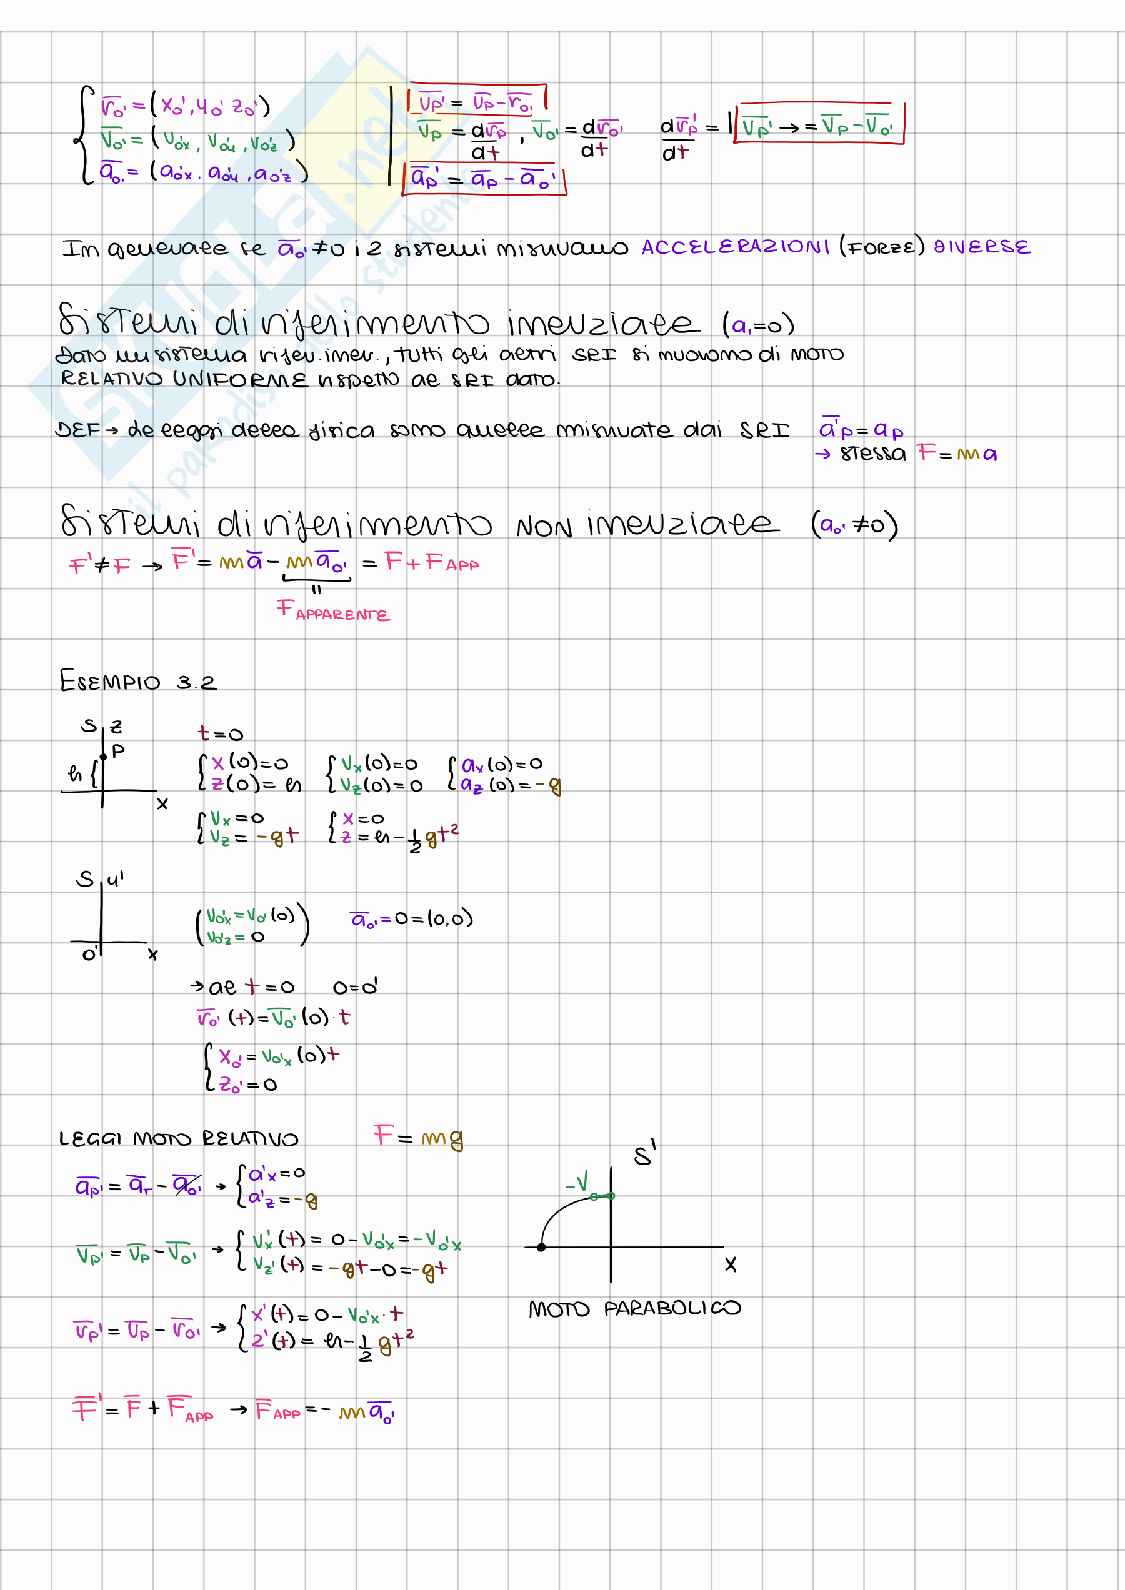 r̅o' = (xo', yo' zo')
v̅o' = (vo'x, vo'y, vo'z)
a̅o' = (ao'x, ao'y, ao'z)
v̅p' = v̅p - r̅o'
v̅p = dr̅p/dt , v̅o' = dr̅o'/dt dr̅p'/dt = | v̅p' → = v̅p - v̅o'
a̅p' = a̅p - a̅o'
In generale se a̅o' ≠ 0 i 2 sistemi misurano ACCELERAZIONI (FORZE) DIVERSE
Sistemi di riferimento inerziale (a,=0)
Dato un sistema rifer. iner., tutti gli altri SRI si muovono di MOTO
RELATIVO UNIFORME rispetto al SRI dato.
DEF → le leggi della fisica sono quelle misurate dai SRI a̅'p = ap
→ stessa F = ma
Sistemi di riferimento NON inerziale (ao' ≠ 0)
F' ≠ F → F̅' = ma̅ - ma̅o' = F + FAPP
"
FAPPARENTE
ESEMPIO 3.2
S z
P
h
x
t = 0
x(0) = 0 vx(0) = 0 ax(0) = 0
z(0) = h vz(0) = 0 az(0) = -g
vx = 0 x = 0
vz = -gt z = h - 1/2 gt²
S y'
O' x
vo'x = vo'(0) a̅o' = 0 = (0,0)
vo'z = 0
→ al t = 0 0 = 0'
r̅o'(t) = v̅o'(0) · t
xo' = vo'x(0)t
zo' = 0
LEGGI MOTO RELATIVO F = mg
a̅p' = a̅r - a̅o' → a'x = 0
a'z = -g
v̅p' = v̅p - v̅o' → vx'(t) = 0 - vo'x = -vo'x
vz'(t) = -gt - 0 = -gt
r̅p' = r̅p - r̅o' → x'(t) = 0 - vo'x · t
z'(t) = h - 1/2 gt²
S'
-v
x
MOTO PARABOLICO
F̅' = F̅ + F̅APP → F̅APP = - ma̅o'
skuola.net
il paradiso dello studente